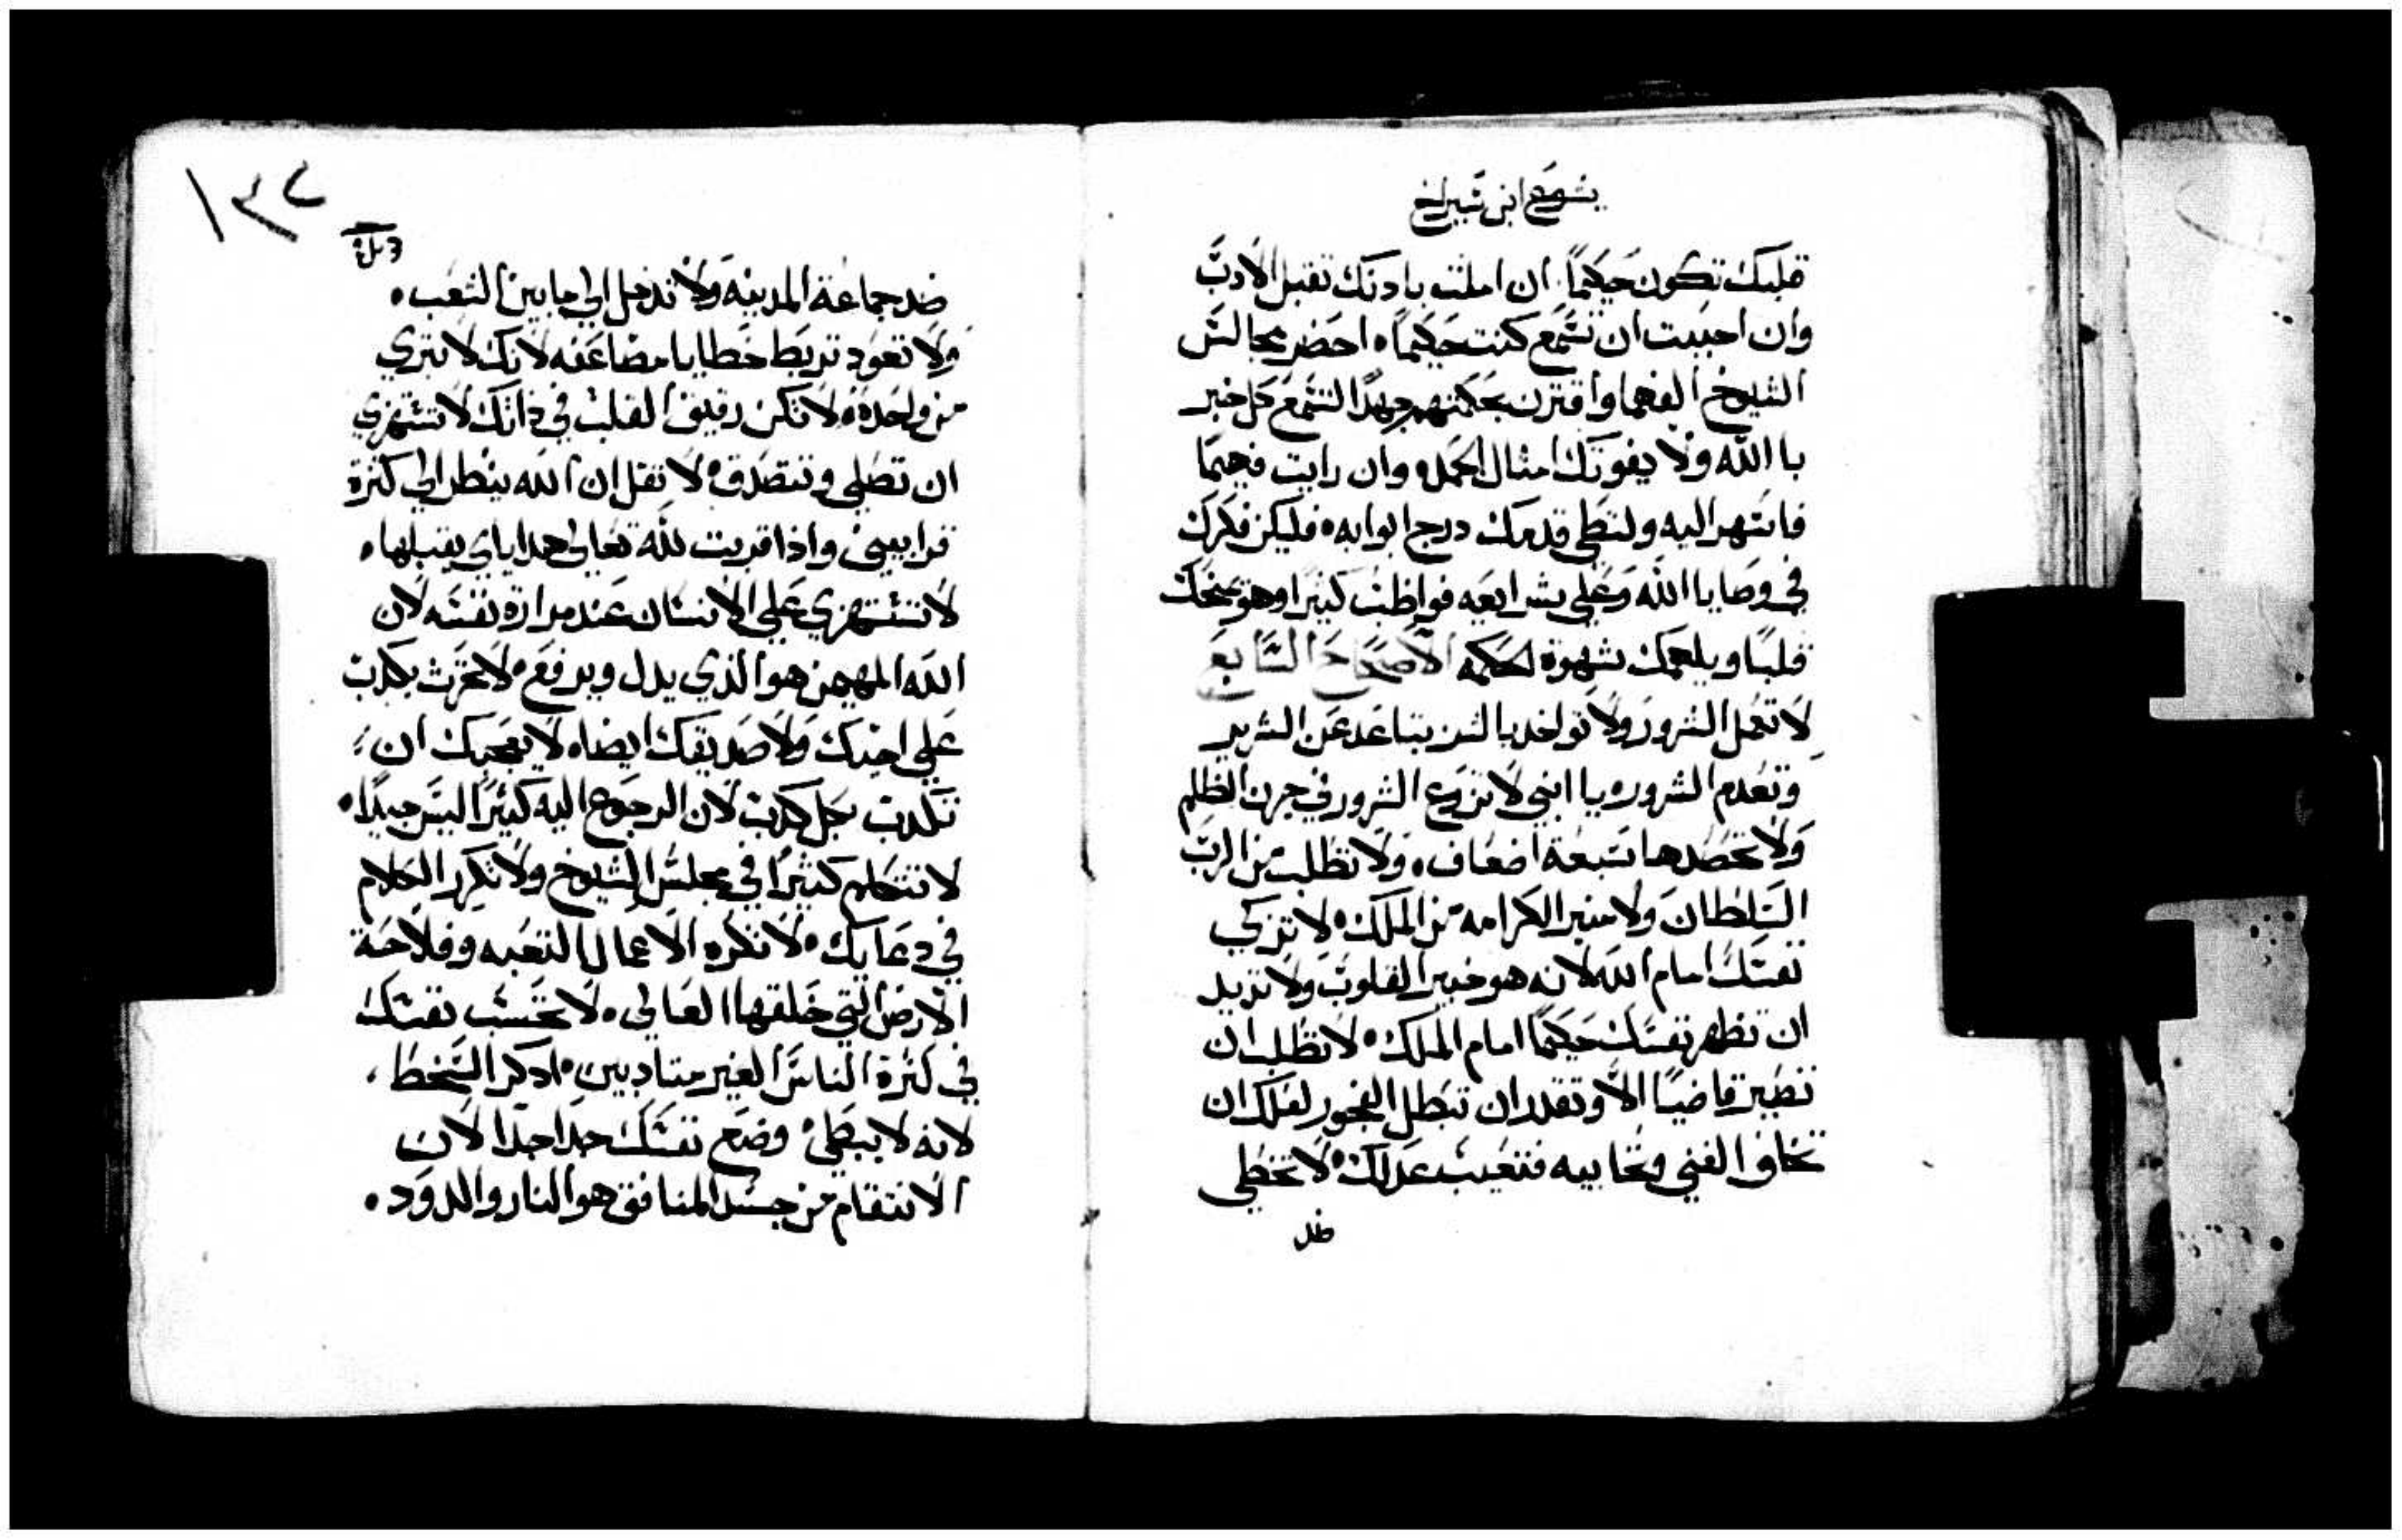 يشوع ابن شيراخ
قلبك تكون حكيمًا. ان املت بادنك تقبل الادب
وان احببت ان تسمع كنت حكيمًا. احضر مجالس
الشيوخ الفهما واقترن بحكمتهم جهدًا لتسمع كل خبر
با الله ولا يفوتك امثال الحمد. وان رايت فهيمًا
فاسهر اليه ولتطي قدمك درج ابوابه. فليكن فكرك
في وصايا الله وعلي شرايعه فواظب كثيرًا وهو يمنحك
قلبًا ويلهمك شهوة الحكمه الاصحاح السابع
لا تعمل الشرور ولا تواخد بالشر تباعد عن الشرير
وتعدم الشرور. يا ابني لا تزرع الشرور في حرن الظلم
ولا تحصدها سبعة اضعاف. ولا تطلب من الرب
السلطان ولا منبر الكرامه من الملك. لا تزكي
نفسك امام الله لانه هو خبير القلوب ولا تريد
ان تظهر نفسك حكيمًا امام الملك. لا تطلب ان
تصير قاضيًا الا وتقدر ان تبطل الفجور لعلك ان
تخاف الغني وتحابيه فتعيب عدلك. لا تخطي
ضد
١٣٢
ضد جماعة المدينه ولا تدخل الي ما بين الشعب.
ولا تعود تربط خطايا مضاعفه لانك لا تبري
من واحده. لا تكن رقيق القلب في ذاتك لا تستهزي
ان تصلي وتتصدق. لا تقل ان الله ينظر الي كثرة
قرابيني واذا قربت لله تعالي هداياي يقبلها.
لا تستهزي علي الانسان عند مرارة نفسه لان
الله المهيمن هو الذي يدل ويرفع. لا تحرث بكدب
علي اخيك ولا صديقك ايضا. لا يعجبك ان
تكدب بكل كدب لان الرجوع اليه كثيرًا ليس جيدًا.
لا تتكلم كثيرًا في مجلس الشيوخ ولا تكرر الكلام
في دعايك. لا تكره الاعمال التعبه وفلاحة
الارض التي خلقها العالي. لا تحسب نفسك
في كثرة الناس الغير متادبين. ادكر السخط
لانه لا يبطي. وضع نفسك جدًا جدًا لان
الانتقام من جسد المنافق هو النار والدود.